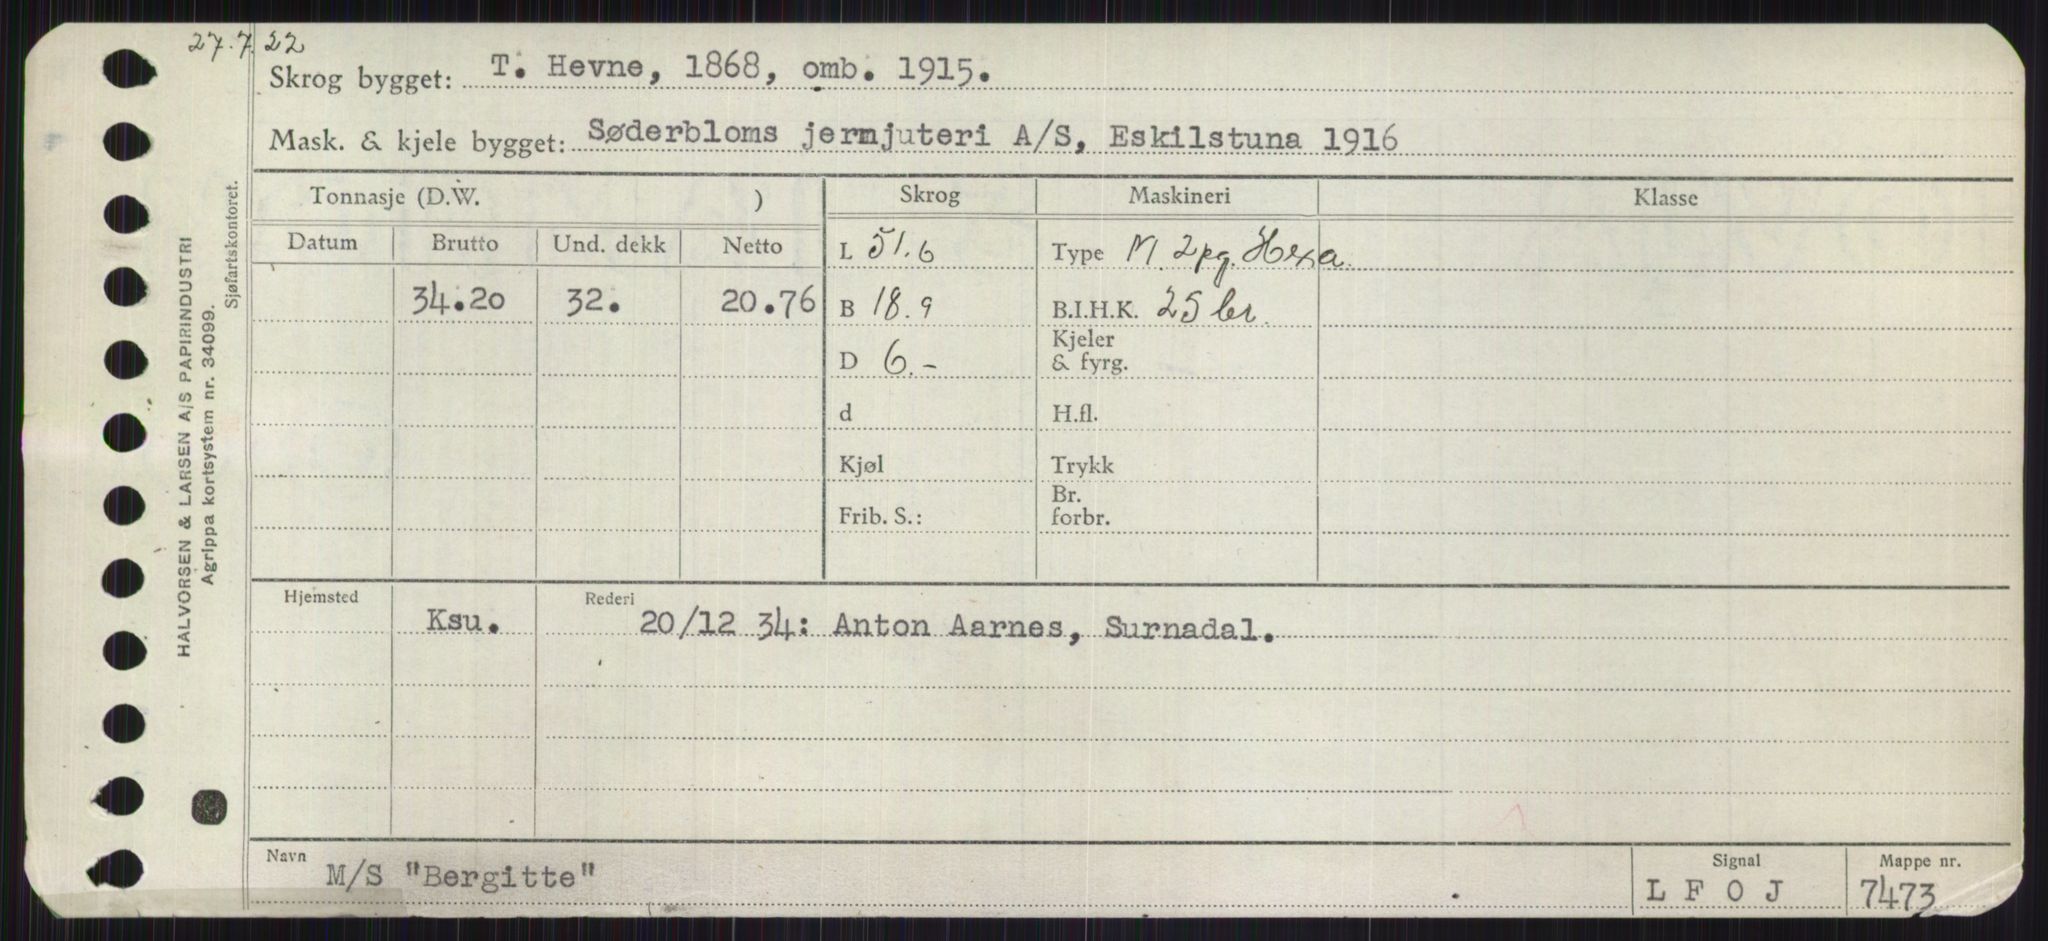 27.7.22
Skrog bygget: T. Hevne, 1868, omb. 1915.
Mask. & kjele bygget: Søderbloms jernjuteri A/S, Eskilstuna 1916
Tonnasje (D.W. ) Skrog Maskineri Klasse
Datum Brutto Und. dekk Netto L 51.6 Type M. 2pg. Hexa.
34.20 32. 20.76 B 18.9 B.I.H.K. 25 br.
D 6.- Kjeler & fyrg.
d H.fl.
Kjøl Trykk
Frib. S.: Br. forbr.
Hjemsted Ksu. Rederi 20/12 34: Anton Aarnes, Surnadal.
Navn M/S "Bergitte" Signal L F O J Mappe nr. 7473
HALVORSEN & LARSEN A/S PAPIRINDUSTRI
Agrippa kortsystem nr. 34099.
Sjøfartskontoret.